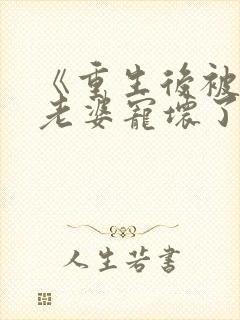 《重生後被
老婆寵壞了
人生若書